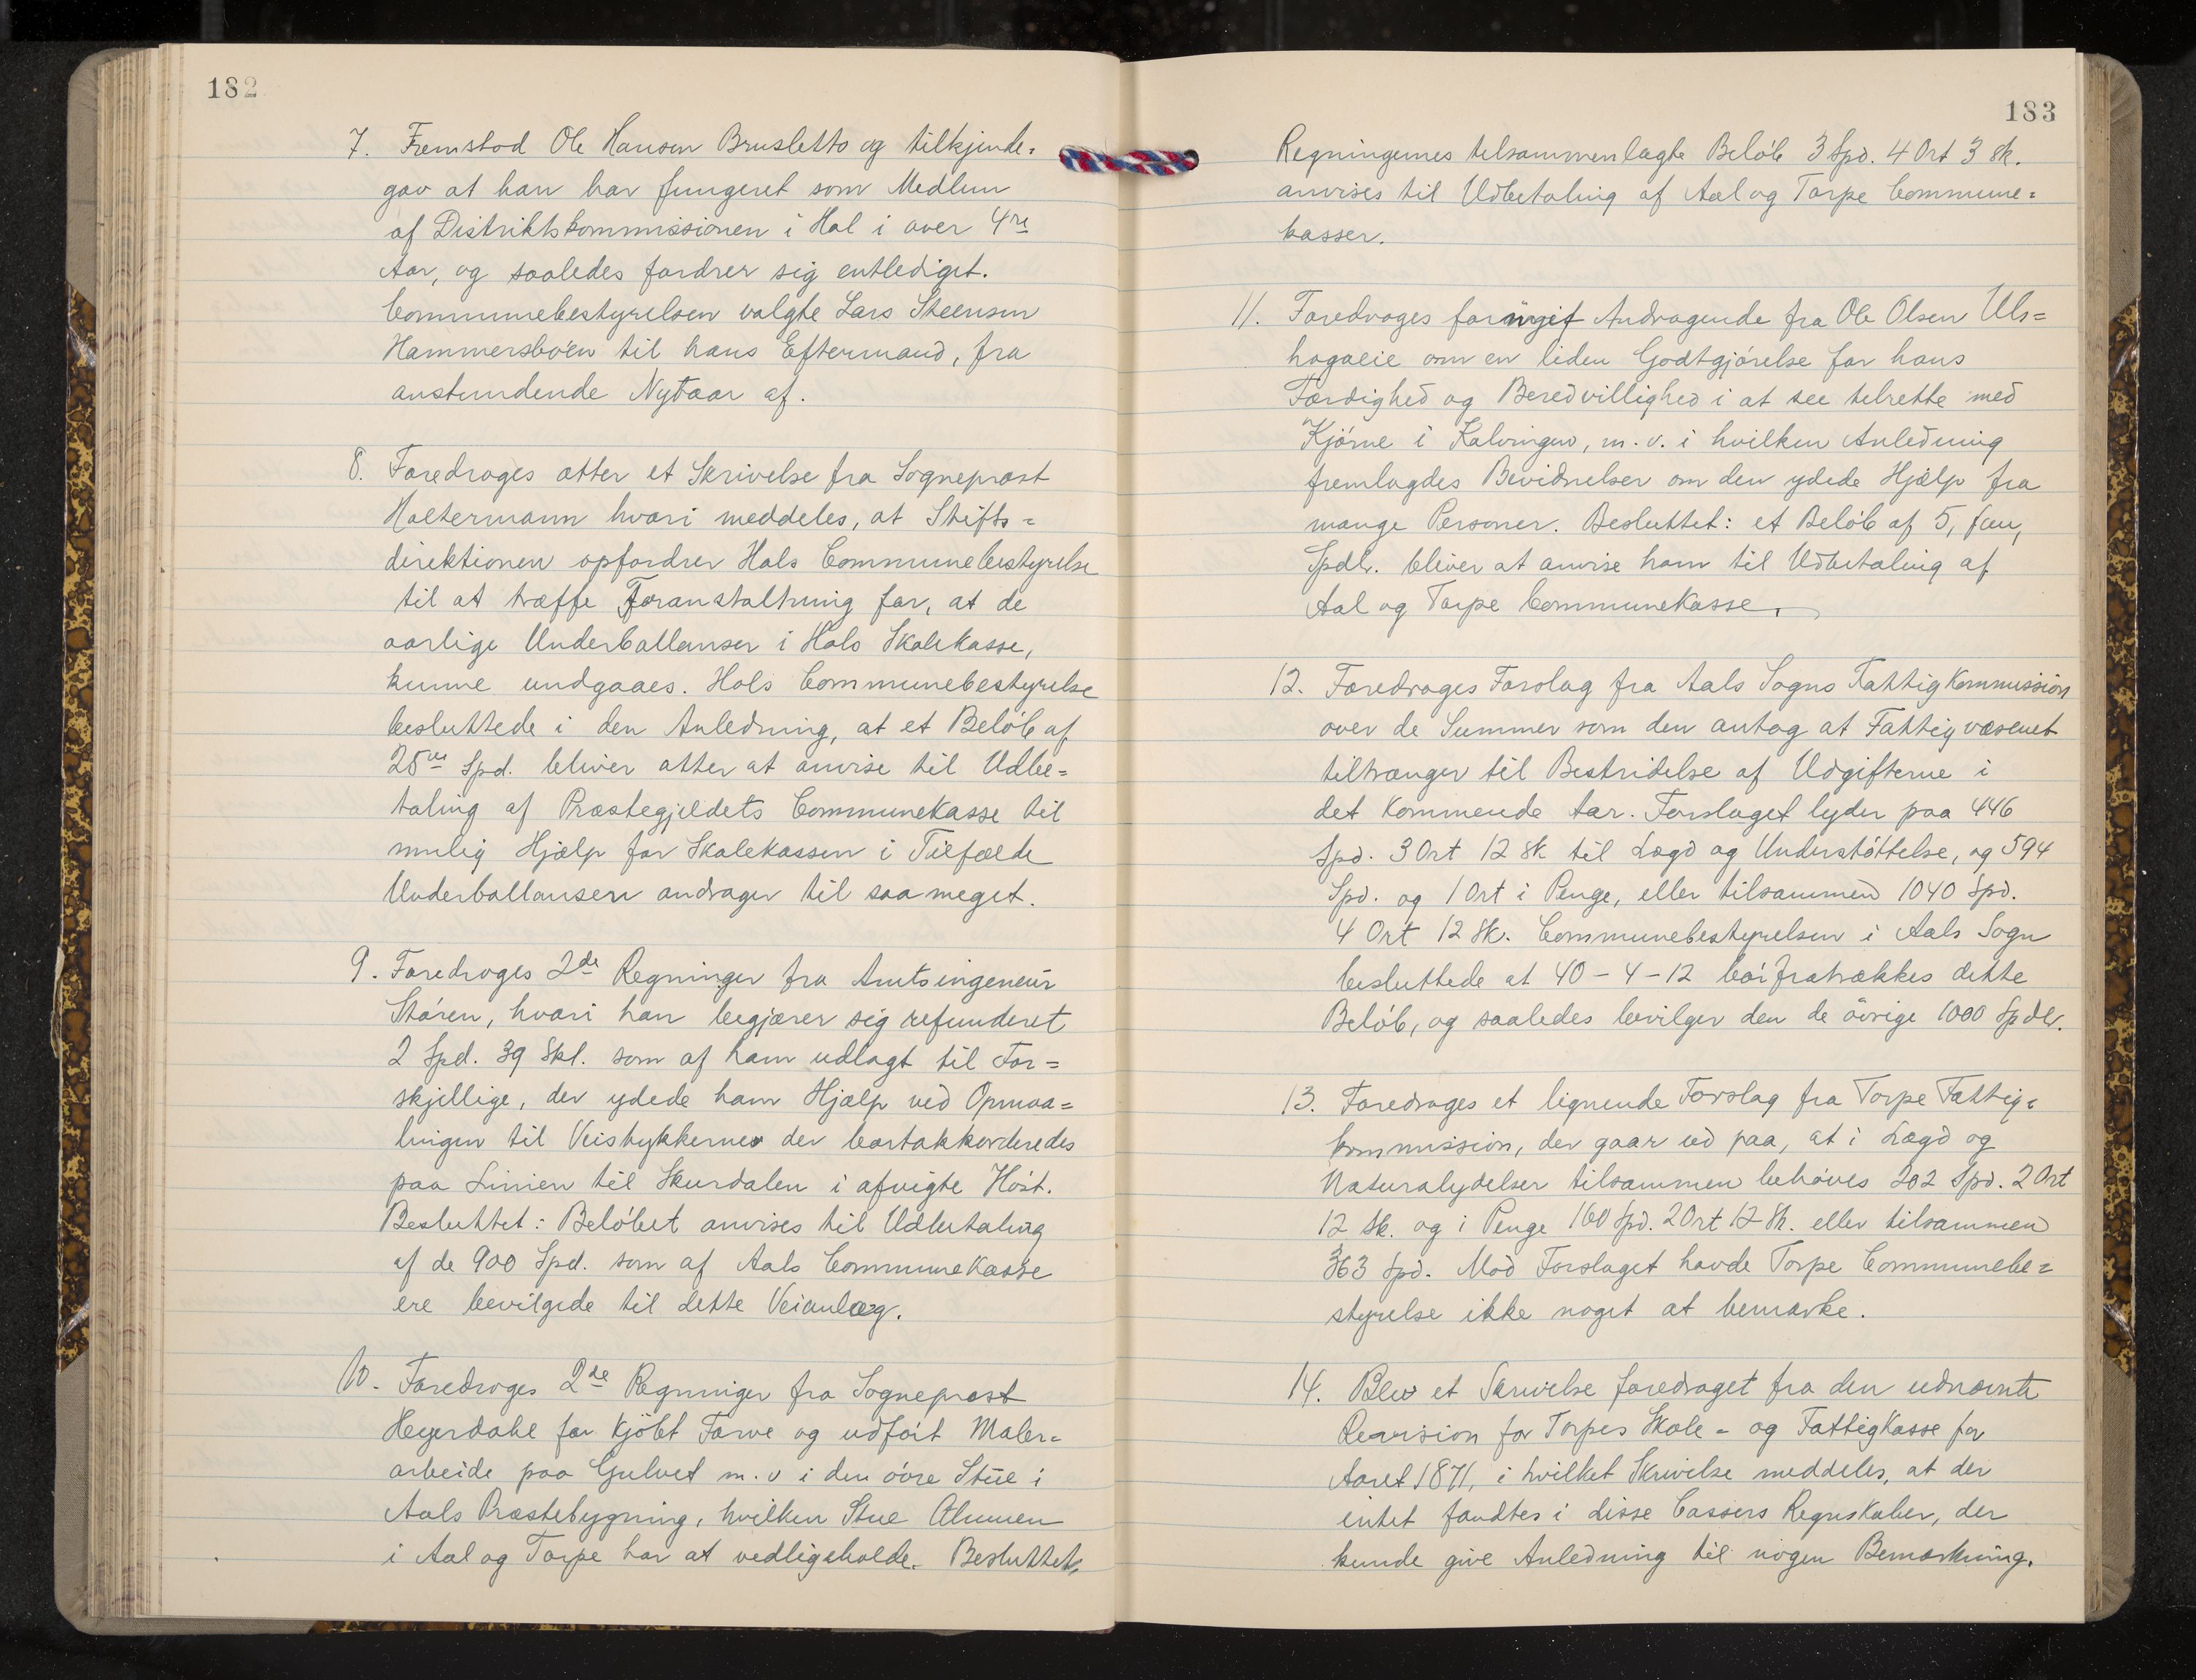 182
7. Fremstod Ole Hansen Brusletto og tilkjende=
gav at han har fungeret som Medlem
af Distriktskommissionen i Hol i over 4re
Aar, og saaledes fordrer sig entlediget.
Communebestyrelsen valgte Lars Steensen
Hammersbøen til hans Eftermand, fra
anstundende Nytaar af.
8. Foredroges atter et Skrivelse fra Sogneprest
Holtermann hvori meddeles, at Stifts=
direktionen opfordrer Hols Communebestyrelse
til at træffe Foranstaltning for, at de
aarlige Underballanser i Hols Skolekasse,
kunne undgaaes. Hols Communebestyrelse
besluttede i den Anledning, at et Beløb af
25ve Spd. bliver atter at anvise til Udbe=
taling af Præstegjeldets Communekasse til
mulig Hjælp for Skolekassen i Tilfælde
Underballansen andrager til saa meget.
9. Foredroges 2de Regninger fra Amtsingeneur
Støren, hvori han begjærer sig refunderet
2 Spd. 39 Skl. som af ham udlagt til For=
skjellige, der ydede ham Hjælp ved Opmaa=
lingen til Veistykkerne der bortakkorderedes
paa Linien til Skurdalen i afvigte Høst.
Besluttet: Beløbet anvises til Udbetaling
af de 900 Spd. som af Aals Communekasse
ere bevilgede til dette Veianlæg.
10. Foredroges 2de Regninger fra Sogneprest
Heyerdahl for kjöbt Farve og udført Maler=
arbeide paa Gulvet m. v i den øvre Stue i
Aals Præstebygning, hvilken Stue Almuen
i Aal og Torpe har at vedligeholde. Besluttet,
183
Regningernes tilsammenlagte Beløb 3 Spd. 4 Ort 3 sk.
anvises til Udbetaling af Aal og Torpe Commune=
kasser.
11. Foredroges fornyet Andragende fra Ole Olsen Uls=
hagaeie om en liden Godtgjørelse for hans
Færdighed og Beredvillighed i at see tilrette med
Kjørne i Kalvingen, m. v. i hvilken Anledning
fremlagdes Bevidnelser om den ydede Hjælp fra
mange Personer. Besluttet: et Beløb af 5, fem,
Spdl. bliver at anvise ham til Udbetaling af
Aal og Torpe Communekasse.
12. Foredroges Forslag fra Aals Sogns Fattigkommission
over de Summer som den antog at Fattigvæsenet
tiltrænger til Bestridelse af Udgifterne i
det kommende Aar. Forslaget lyder paa 446
Spd. 3 Ort 12 sk til Lægd og Understøttelse, og 594
Spd. og 1 Ort i Penge, eller tilsammen 1040 Spd.
4 Ort 12 sk. Communebestyrelsen i Aals Sogn
besluttede at 40-4-12 bør fratrækkes dette
Beløb, og saaledes bevilger den de øvrige 1000 Spdlr.
13. Foredroges et lignende Forslag fra Torpe Fattig=
kommission, der gaar ud paa, at i Lægd og
Naturalydelser tilsammen behøves 202 Spd. 2 Ort
12 sk. og i Penge 160 Spd. 2 Ort 12 sk. eller tilsammen
363 Spd. Mod Forslaget havde Torpe Communebe=
styrelse ikke noget at bemærke.
14. Blev et Skrivelse foredraget fra den udnævnte
Revision for Torpes Skole- og Fattigkasse for
Aaret 1871, i hvilket Skrivelse meddeles, at der
intet fandtes i disse Cassers Regnskaber, der
kunde give Anledning til nogen Bemærkning.